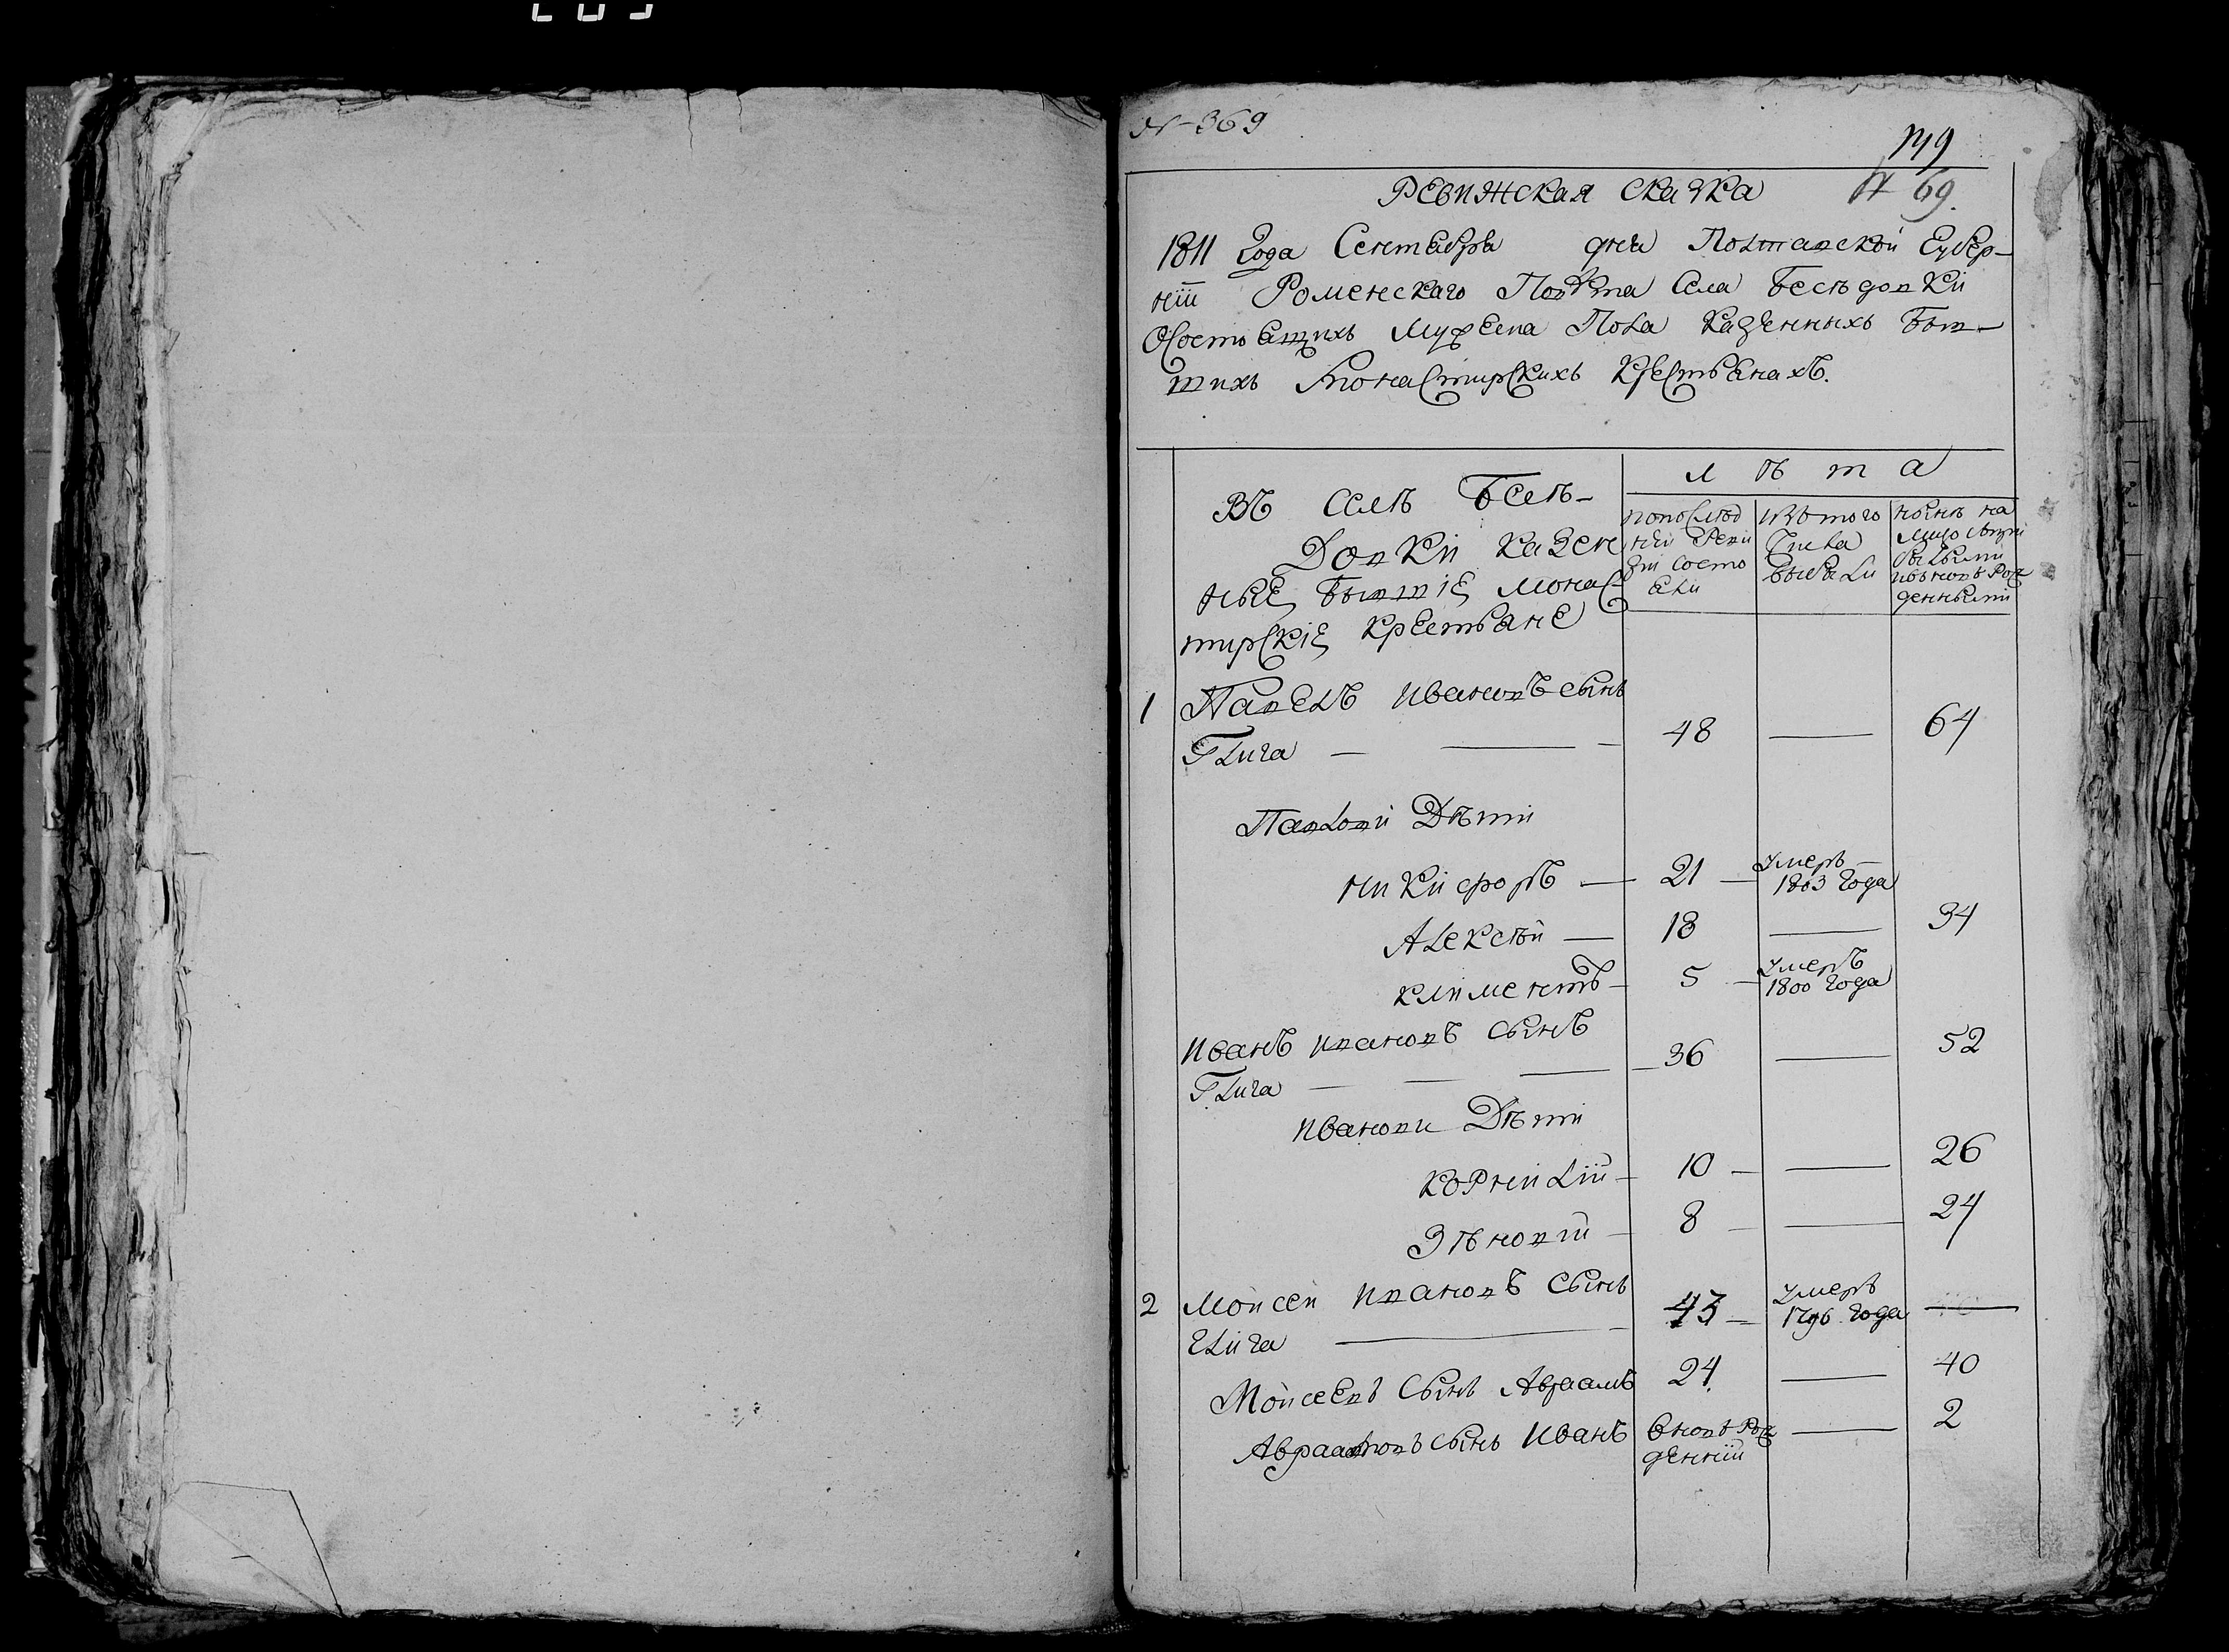 № 369
69
РЕВИЖСКАЯ СКАЗКА
1811 года Сентебра дня Полтавской Губер-
нїи Роменскаго Повѣта Села Бесѣдовки
Осостоещихъ Мужеска Пола Казенныхъ Быв-
шихъ Монастирскихъ Крестьенахъ.
Въ Селѣ Бесѣ-
довки Казен
ные Бывшіе Монас-
тирскіе Крестьяне
Л ѣ т а
попослѣд
ней Реви
зіи состо
ели
Изътого
Числа
выбыли
нынѣ на
лицо
денными
1 Павелъ Ивановъ сынъ
Глига 48 — 64
Павлови Дѣти
Никифоръ — 21 — умеръ —
1803 года
Алексѣй — 18 — 34
Климентъ — 5 — умеръ
1800 года
Иванъ Ивановъ Сынъ
Глига — 36 — 52
Иванови Дѣти
Корнилій — 10 — 26
Зѣновій — 8 — 24
2 Мойсей Ивановъ Сынъ
Глига — 43 — умеръ
1796 года —
Мойсеевъ Сынъ Авраамъ 24 — 40
Авраамовъ Сынъ Иванъ Вновъ Рож
деннїй — 2